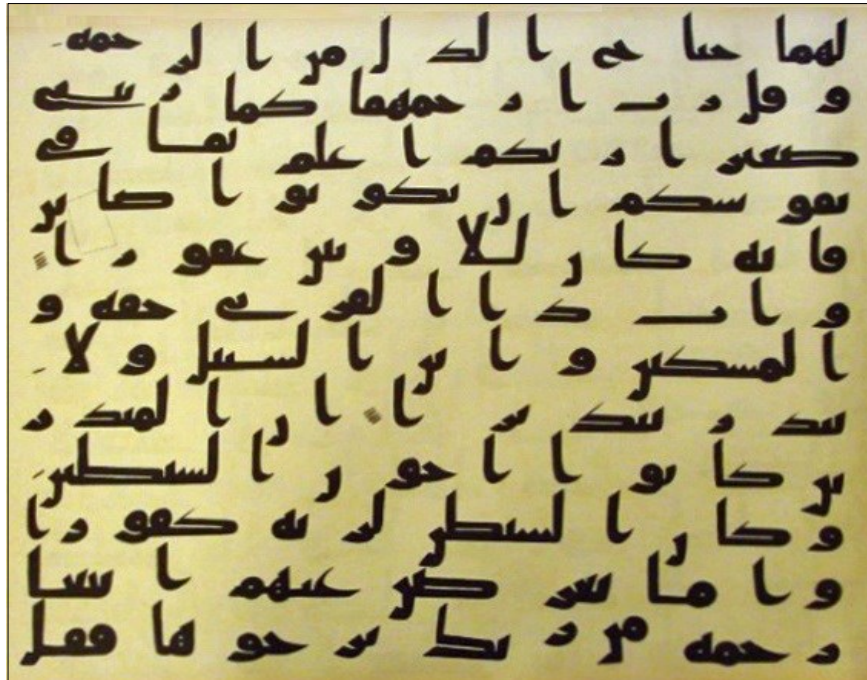 لهما جناح الذل من الرحمة
وقل رب ارحمهما كما ربيني
صغيرا ربكم اعلم بما في
نفوسكم ان تكونوا صلحين
فانه كان للاوبين غفورا
وات ذا القربى حقه و
المسكين وابن السبيل ولا
تبذر تبذيرا ان المبذر
ين كانوا اخون الشيطين
وكان الشيطن لربه كفورا
واما تعرضن عنهم ابتغا
رحمة من ربك ترجوها فقل